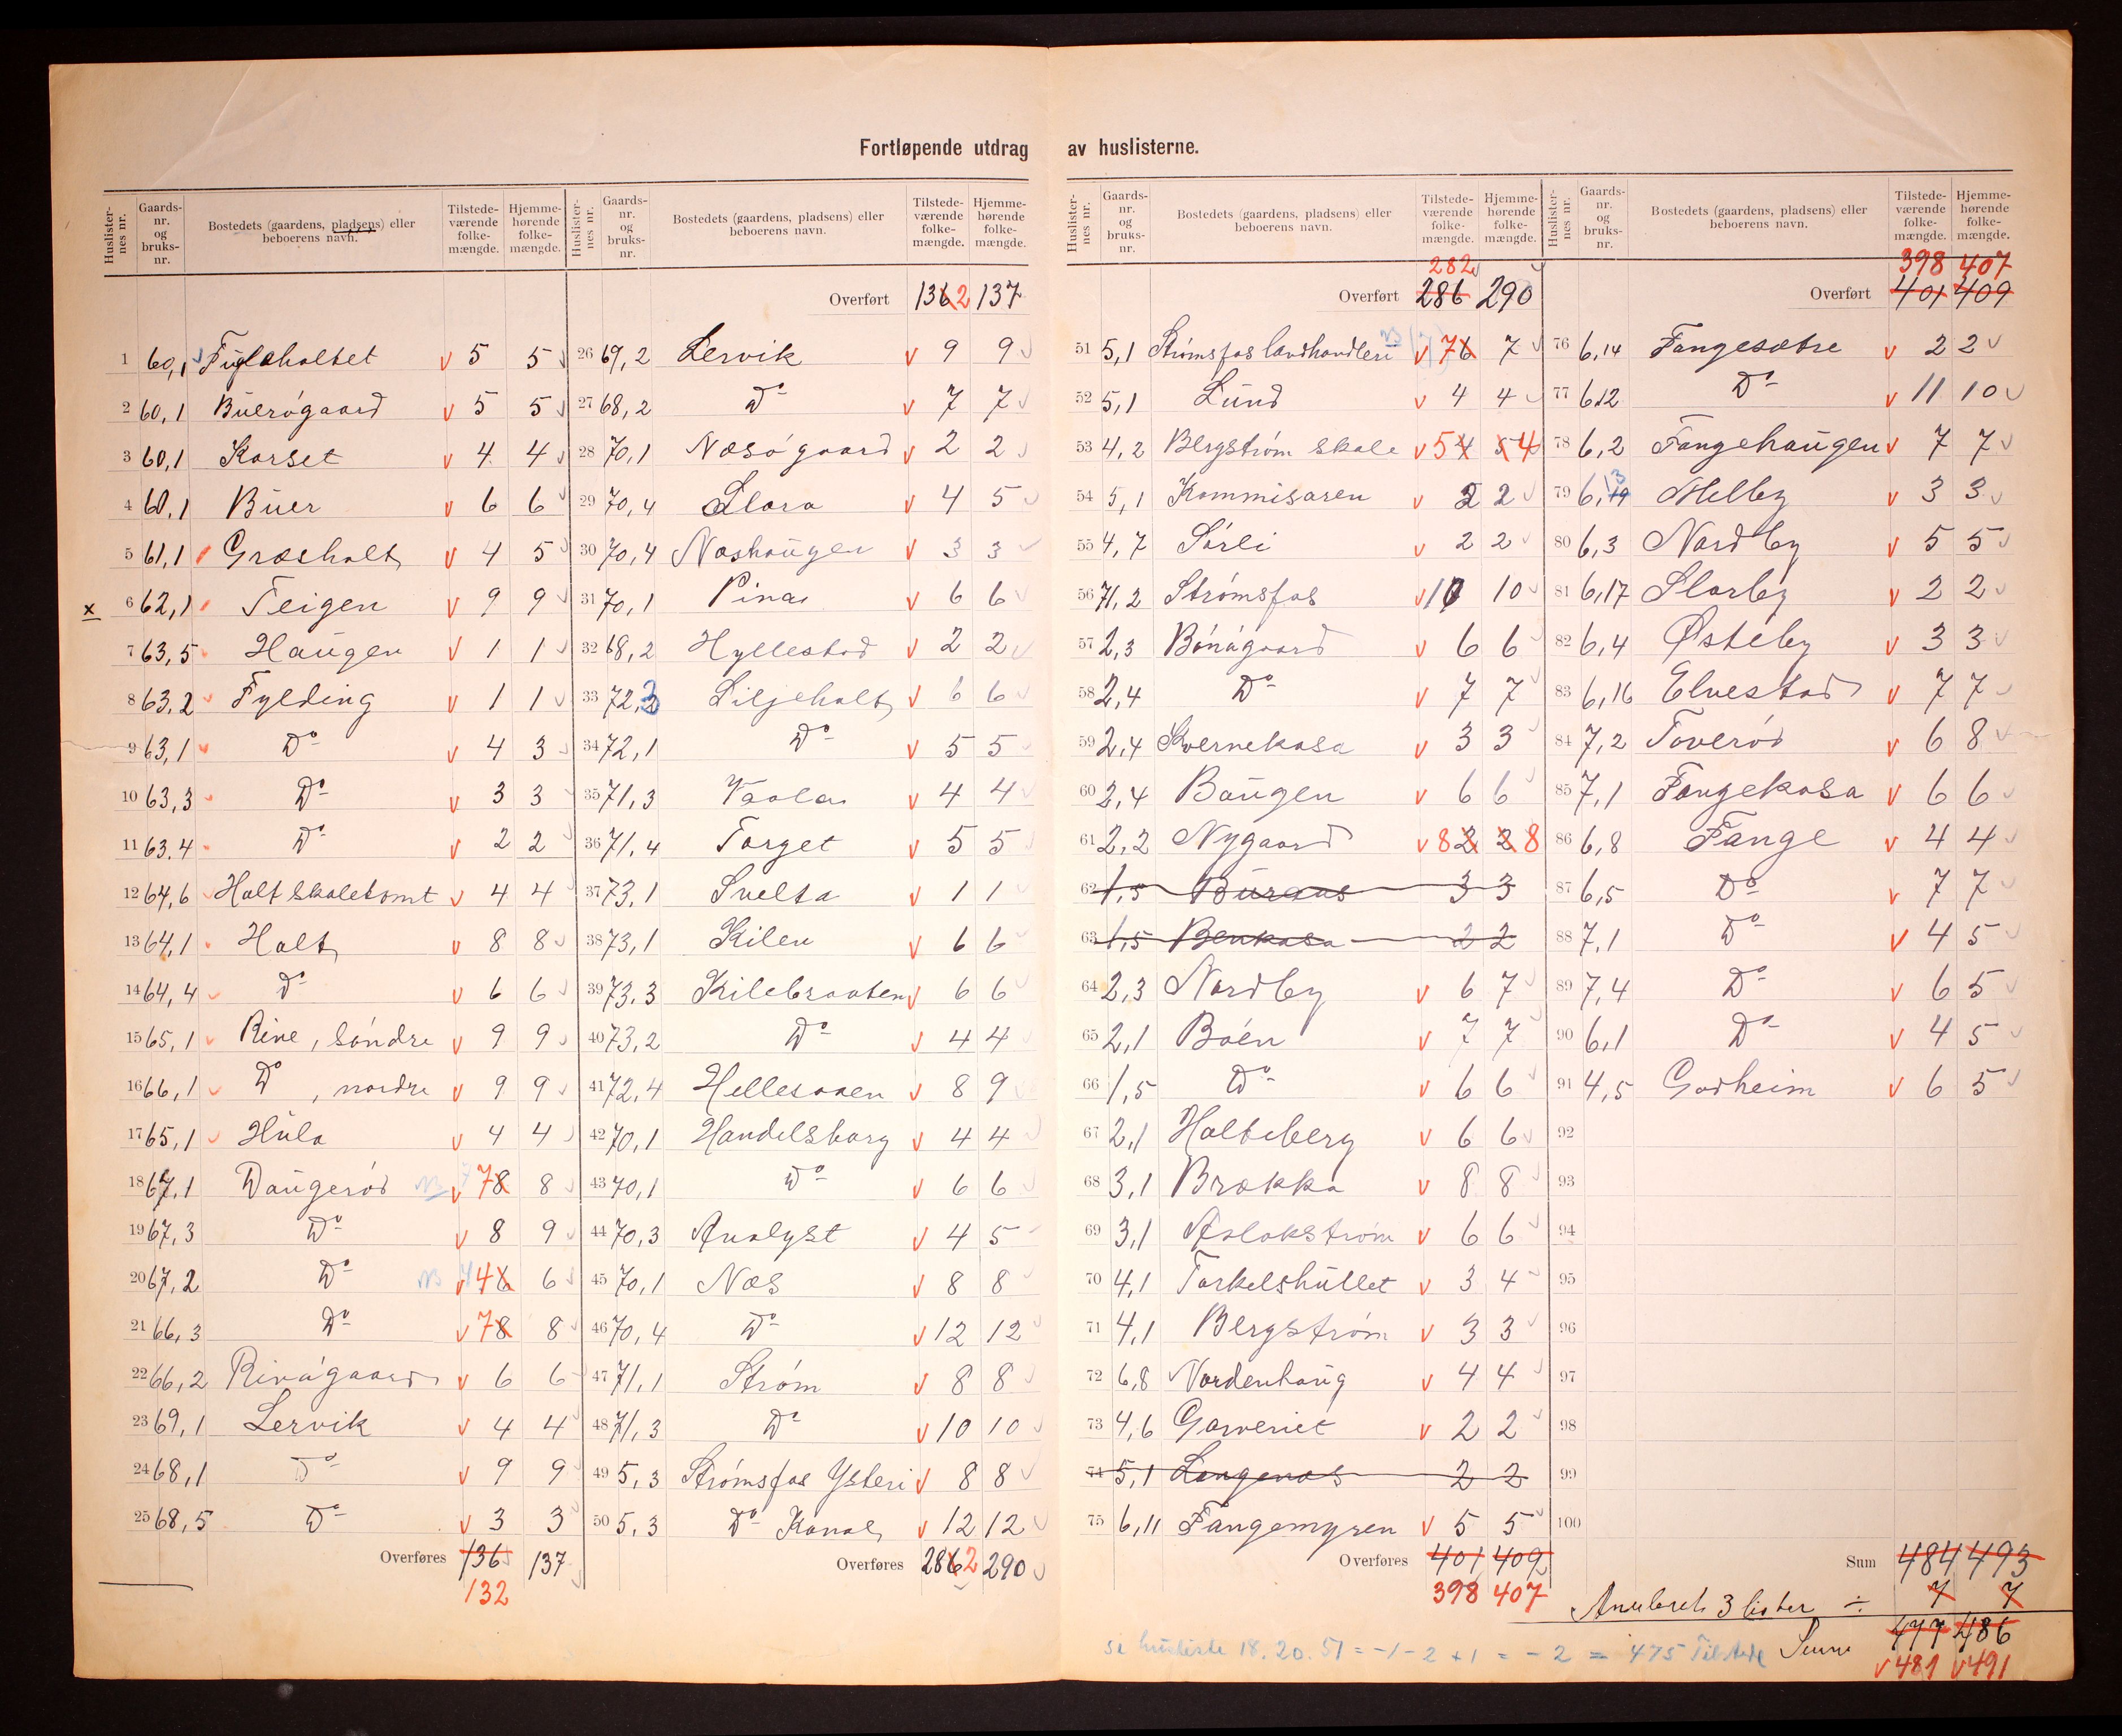 Fortløpende utdrag av huslisterne.
Huslister-nes nr. Gaards-nr. og bruks-nr. Bostedets (gaardens, pladsens) eller beboerens navn. Tilstede-værende folke-mængde. Hjemme-hørende folke-mængde.
1 60,1 Fugleholtet 5 5
2 60,1 Buerøgaard 5 5
3 60,1 Korset 4 4
4 60,1 Buer 6 6
5 61,1 Græsholt 4 5
x 6 62,1 Teigen 9 9
7 63,5 Haugen 1 1
8 63,2 Fylding 1 1
9 63,1 Do 4 3
10 63,3 Do 3 3
11 63,4 Do 2 2
12 64,6 Holt skoletomt 4 4
13 64,1 Holt 8 8
14 64,4 Do 6 6
15 65,1 Rive, søndre 9 9
16 66,1 Do, nordre 9 9
17 65,1 Hula 4 4
18 67,1 Daugerød NB 7 78 8
19 67,3 Do 8 9
20 67,2 Do NB 4 46 6
21 66,3 Do 78 8
22 66,2 Rivøgaard 6 6
23 69,1 Lervik 4 4
24 68,1 Do 9 9
25 68,5 Do 3 3
Overføres 136 137
132
Huslister-nes nr. Gaards-nr. og bruks-nr. Bostedets (gaardens, pladsens) eller beboerens navn. Tilstede-værende folke-mængde. Hjemme-hørende folke-mængde.
Overført 136 2 137
26 69,2 Lervik 9 9
27 68,2 Do 7 7
28 70,1 Næsøgaard 2 2
29 70,4 Slora 4 5
30 70,4 Næshaugen 3 3
31 70,1 Pina 6 6
32 68,2 Hyllestad 2 2
33 72,3 Liljeholt 6 6
34 72,1 Do 5 5
35 71,3 Vaala 4 4
36 71,4 Torget 5 5
37 73,1 Svelta 1 1
38 73,1 Kilen 6 6
39 73,3 Kilebraaten 6 6
40 73,2 Do 4 4
41 72,4 Hellesaaen 8 9
42 70,1 Handelsborg 4 4
43 70,1 Do 6 6
44 70,3 Analyst 4 5
45 70,1 Næs 8 8
46 70,4 Do 12 12
47 71,1 Strøm 8 8
48 71,3 Do 10 10
49 5,3 Strømsfos Ysteri 8 8
50 5,3 Do Kanal 12 12
Overføres 286 2 290
Huslister-nes nr. Gaards-nr. og bruks-nr. Bostedets (gaardens, pladsens) eller beboerens navn. Tilstede-værende folke-mængde. Hjemme-hørende folke-mængde.
282
Overført 286 290
51 5,1 Strømsfos landhandleri NB 76 7
52 5,1 Lund 4 4
53 4,2 Bergstrøm skole 54 54
54 5,1 Kommisaren 2 2
55 4,7 Sørli 2 2
56 71,2 Strømsfos 10 10
57 2,3 Bønøgaard 6 6
58 2,4 Do 7 7
59 2,4 Kvernekasa 3 3
60 2,4 Baugen 6 6
61 2,2 Nygaard 82 28
62 1,5 Buraas 3 3
63 1,5 Benkasa 2 2
64 2,3 Nordby 6 7
65 2,1 Bøen 7 7
66 1,5 Do 6 6
67 2,1 Holteberg 6 6
68 3,1 Brække 8 8
69 3,1 Aslakstrøm 6 6
70 4,1 Torkelshullet 3 4
71 4,1 Bergstrøm 3 3
72 6,8 Nordenhaug 4 4
73 4,6 Garveriet 2 2
74 5,1 Langenæs 2 2
75 6,11 Fangemyren 5 5
Overføres 401 409
398 407
Huslister-nes nr. Gaards-nr. og bruks-nr. Bostedets (gaardens, pladsens) eller beboerens navn. Tilstede-værende folke-mængde. Hjemme-hørende folke-mængde.
398 407
Overført 401 409
76 6,14 Fangesætre 2 2
77 6,12 Do 11 10
78 6,2 Fangehaugen 7 7
79 6,13 Melby 3 3
80 6,3 Nordby 5 5
81 6,17 Slorby 2 2
82 6,4 Østeby 3 3
83 6,16 Elvestad 7 7
84 7,2 Toverød 6 8
85 7,1 Fangekasa 6 6
86 6,8 Fange 4 4
87 6,5 Do 7 7
88 7,1 Do 4 5
89 7,4 Do 6 5
90 6,1 Do 4 5
91 4,5 Godheim 6 5
92
93
94
95
96
97
98
99
100
Sum 484 493
Anuleret 3 lister ÷ 7 7
Sum 477 486
481 491
se husliste 18. 20. 51 = -1 - 2 + 1 = - 2 = 475 Tilstede